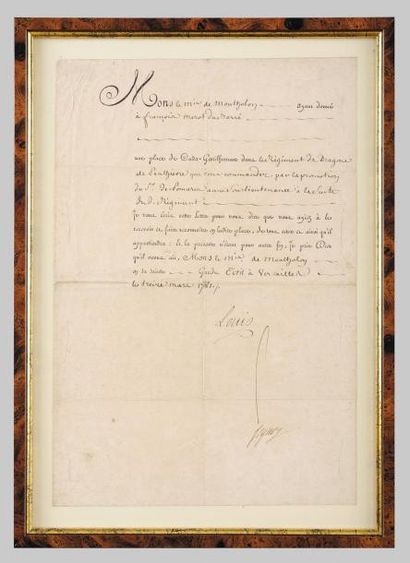 Mons le mis de Montholon ayant donné
à françois Morot
une place de Cadet-Gentilhomme dans le Régiment de Dragons
de Penthievre que vous commandez, par la promotion
du Sr. de à une souslieutenance à la suite
du d. Régiment
je vous écris cette Lettre pour vous dire que vous ayez à le
recevoir et faire reconnoitre en ladite place, de tous ceux et ainsi qu'il
appartiendra: Et la présente n'étant pour autre fin, je prie Dieu
qu'il vous ait, Mons le mis de Montholon
en sa sainte Garde Ecrit à Versailles
le treize mars 1781.
Louis
Segur